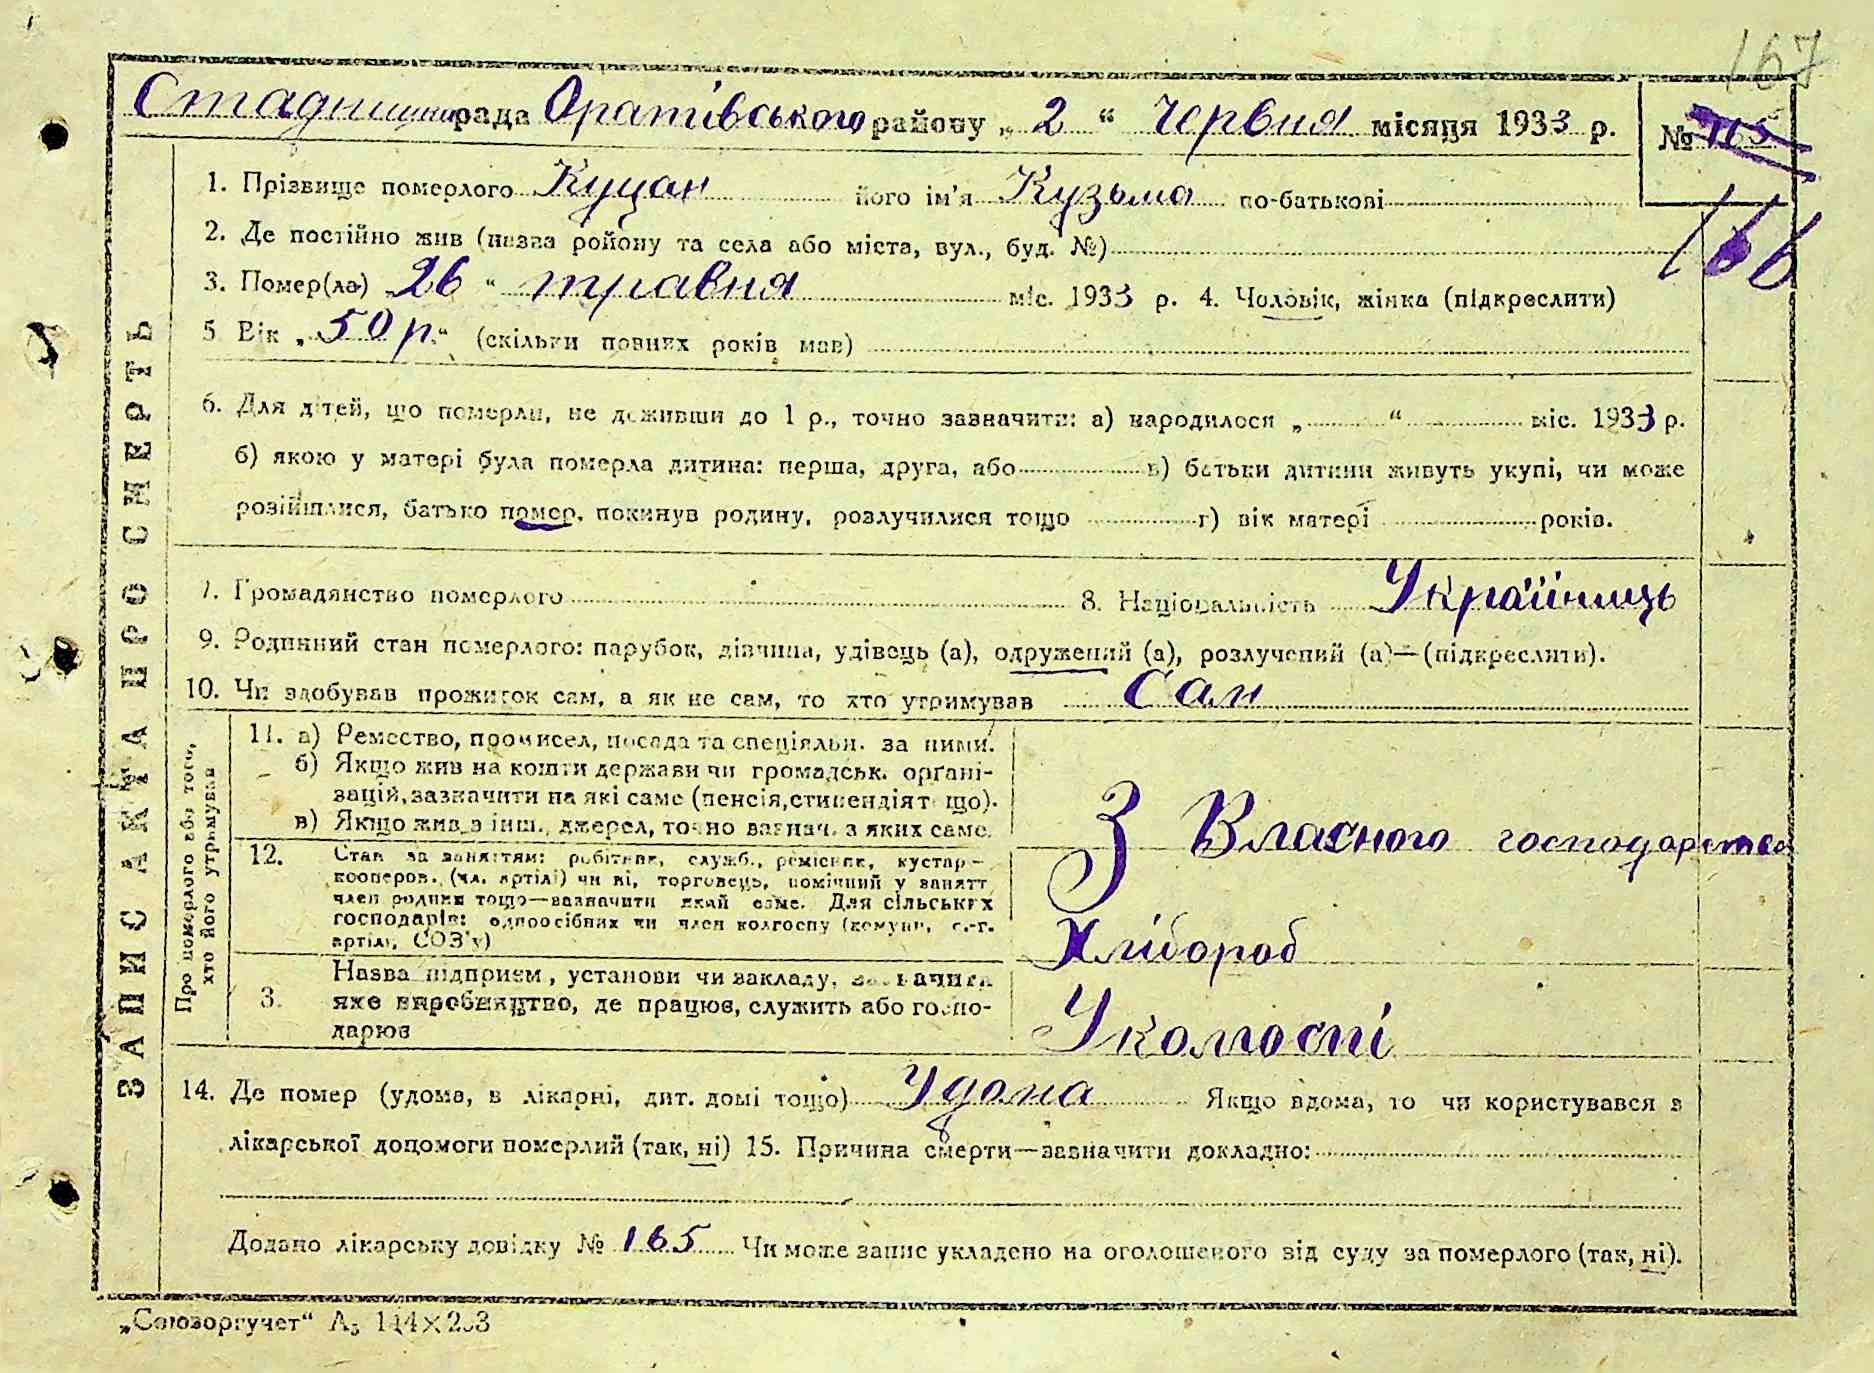 167
Стадницька рада Оратівського району „ 2 “ Червня місяця 1933 р. № 165
166
1. Прізвище померлого Куцан його ім'я Кузьма по-батькові
2. Де постійно жив (назва ройону та села або міста, вул., буд. №)
3. Помер(ла) „ 26 “ травня міс. 1933 р. 4. Чоловік, жінка (підкреслити)
5 Вік „ 50 р. “ (скільки повних років мав)
6. Для дітей, що померли, не доживши до 1 р., точно зазначити: а) народилося „ “ міс. 1933 р.
б) якою у матері була померла дитина: перша, друга, або в) батьки дитини живуть укупі, чи може
розійшлися, батько помер, покинув родину, розлучилися тощо г) вік матері років.
7. Громадянство померлого 8. Національність Україіниць
9. Родинний стан померлого: парубок, дівчина, удівець (а), одружений (а), розлучений (а)—(підкреслити).
10. Чи здобував прожиток сам, а як не сам, то хто утримував Сам
Про померлого або того,
хто його утримував
11. а) Ремество, промисел, посада та спеціяльн. за ними.
б) Якщо жив на кошти держави чи громадськ. орґані-
зацій, зазначити на які саме (пенсія, стипендія т що).
в) Якщо жив з інш. джерел, точно зазнач. з яких саме.
З Власного господарства
12. Стан за заняттям: робітник, служб., ремісник, кустар-
кооперов. (чл. артілі) чи ні, торговець, помічний у занятт
член родини тощо—зазначити який саме. Для сільських
господарів: одноосібних чи член колгоспу (комуни, с.-г.
артілі, СОЗ'у)
Хлібороб
3. Назва підприєм, установи чи закладу, зазначити
яке виробництво, де працює, служить або госпо-
дарює
У колгоспі
14. Де помер (удома, в лікарні, дит. домі тощо) Удома Якщо вдома, то чи користувався з
лікарської допомоги померлий (так, ні) 15. Причина смерти—зазначити докладно:
Додано лікарську довідку № 165 Чи може запис укладено на оголошеного від суду за померлого (так, ні).
ЗАПИС АКТА ПРО СМЕРТЬ
„Союзоргучет“ А₅